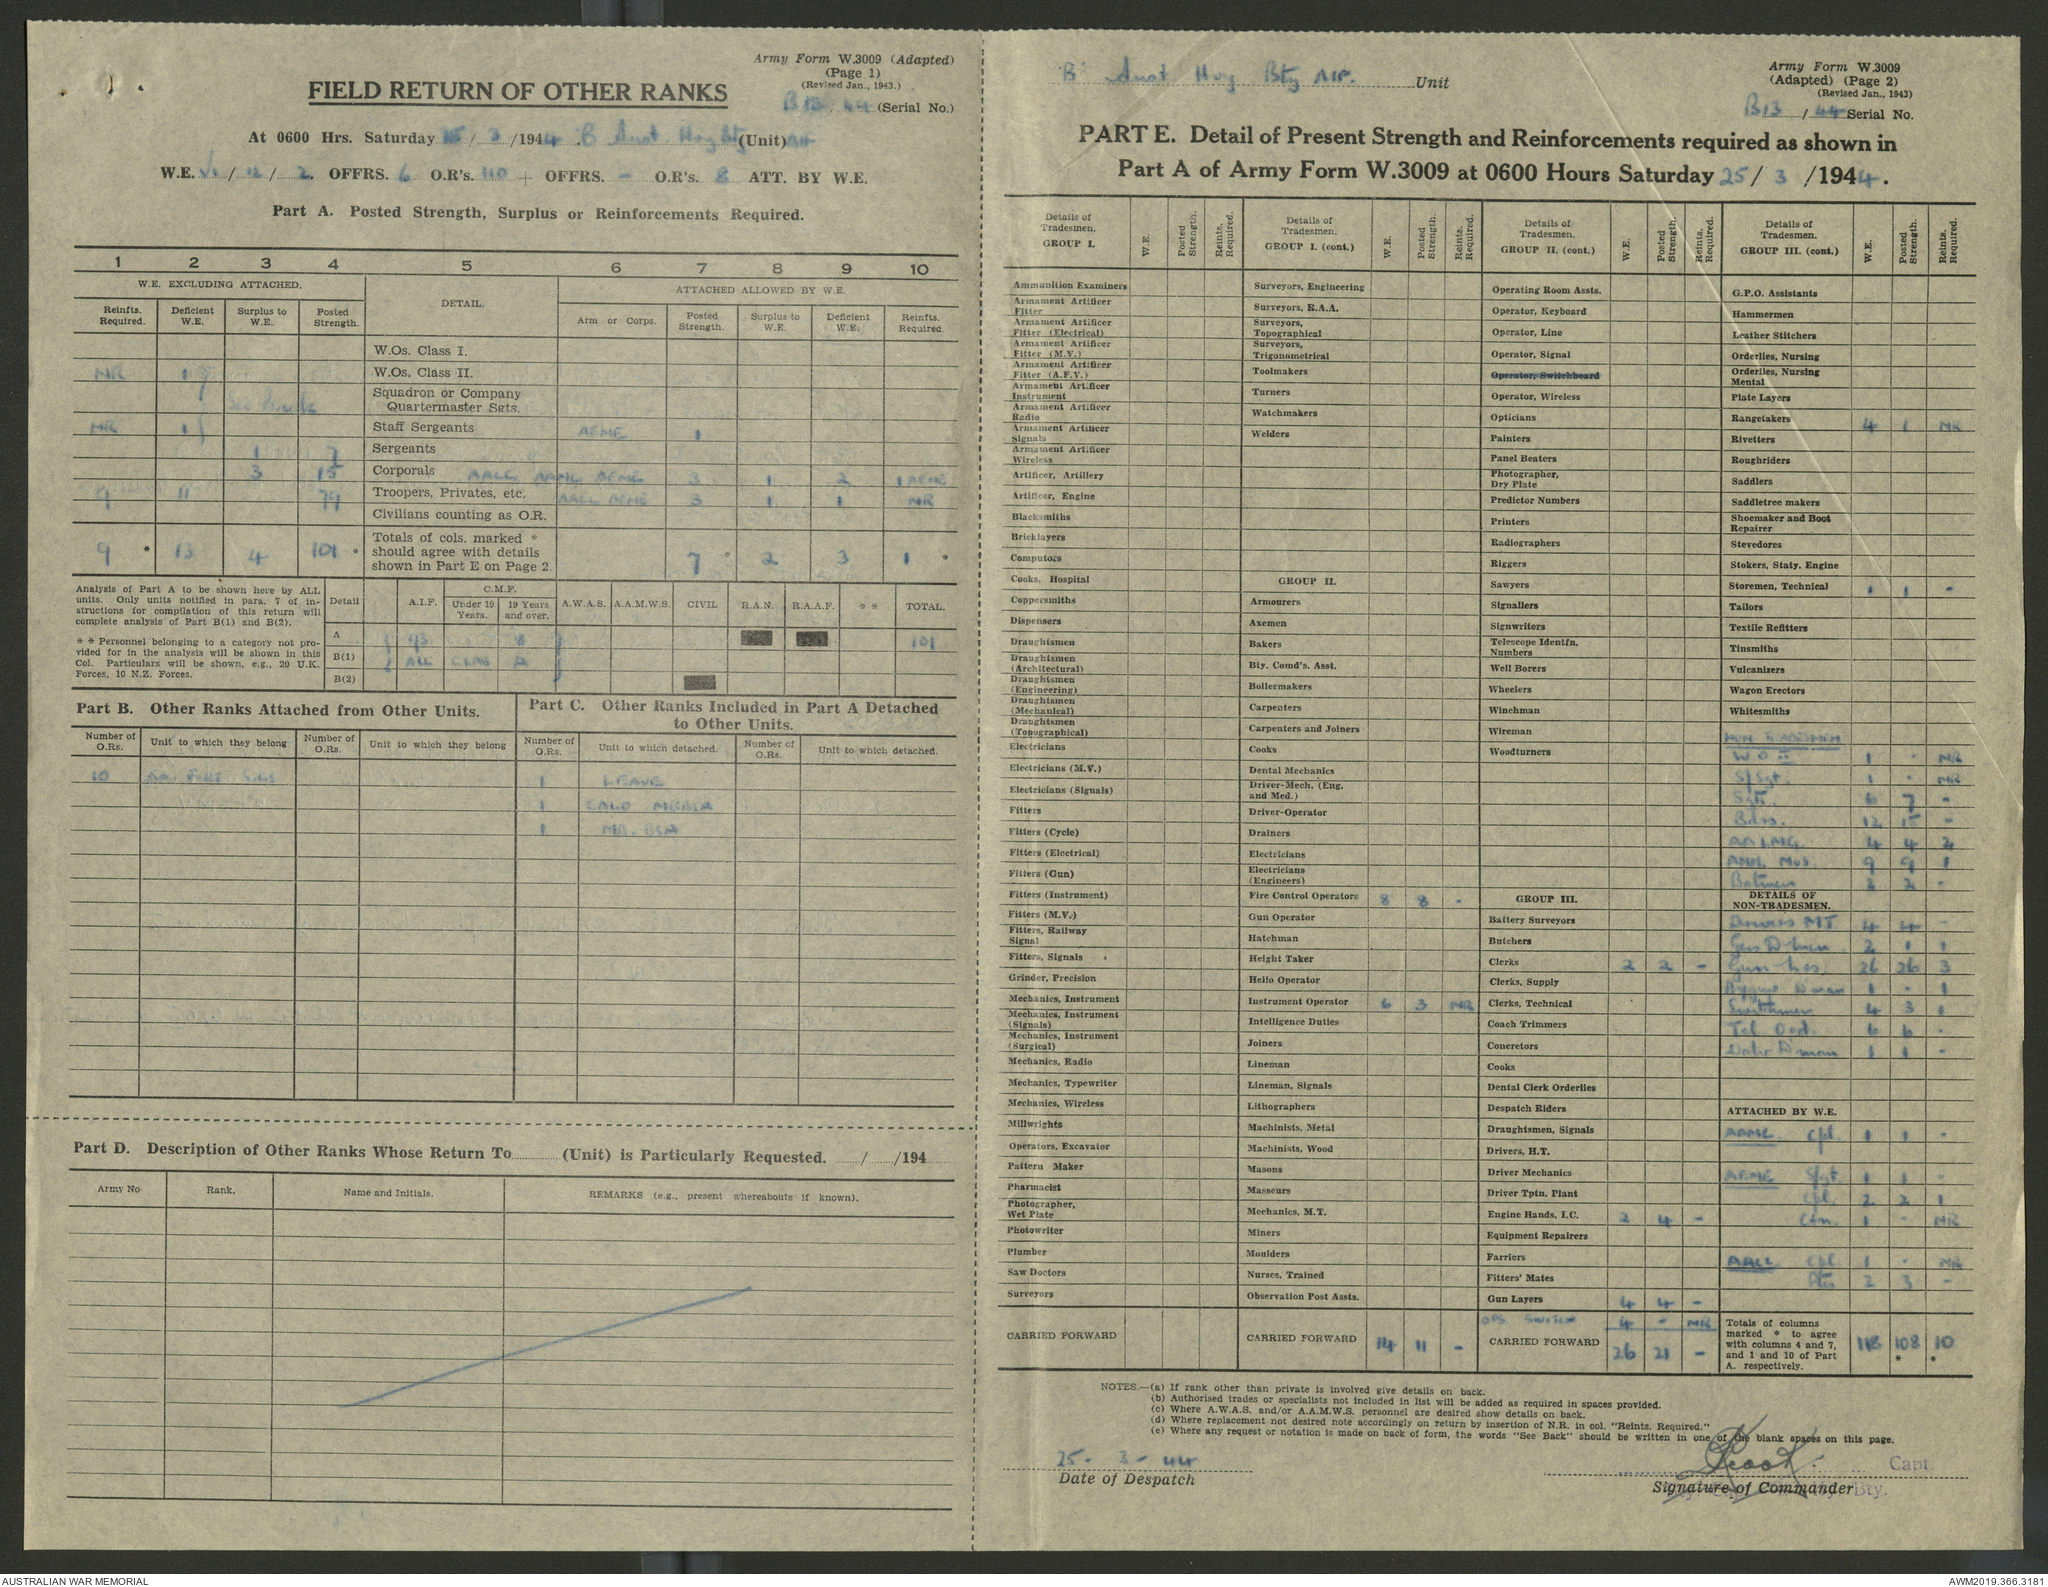 Army Form W.3009 (Adapted)
(Page 1)
(Revised Jan., 1943.)
FIELD RETURN OF OTHER RANKS
B13/44 (Serial No.)
At 0600 Hrs. Saturday / 3 /1944 . 'B' Aust Hvy Bty (Unit) AIF
W.E. VI / 12 / 2. OFFRS. 6 O.R's. 110 + OFFRS. - O.R's. 8 ATT. BY W.E.
Part A. Posted Strength, Surplus or Reinforcements Required.
1 2 3 4 5 6 7 8 9 10
W.E. EXCLUDING ATTACHED. DETAIL. ATTACHED ALLOWED BY W.E.
Reinfts. Required. Deficient W.E. Surplus to W.E. Posted Strength. Arm or Corps. Posted Strength. Surplus to W.E. Deficient W.E. Reinfts. Required.
W.Os. Class I.
NR 1 W.Os. Class II.
Squadron or Company Quartermaster Sgts.
NR 1 Staff Sergeants AEME 1
1 7 Sergeants
3 15 Corporals AACC AAMC AEME 3 1 2 1 AEME
9 11 79 Troopers, Privates, etc. AACC AEME 3 1 1 NR
Civilians counting as O.R.
9 * 13 4 101 * Totals of cols. marked * should agree with details shown in Part E on Page 2. 7 * 2 3 1 *
Analysis of Part A to be shown here by ALL units. Only units notified in para. 7 of instructions for compilation of this return will complete analysis of Part B(1) and B(2).
* * Personnel belonging to a category not provided for in the analysis will be shown in this Col. Particulars will be shown, e.g., 20 U.K. Forces, 10 N.Z. Forces.
Detail A.I.F. C.M.F. Under 19 Years. 19 Years and over. A.W.A.S. A.A.M.W.S. CIVIL R.A.N. R.A.A.F. * * TOTAL.
A 93 8 101
B(1) ALL CLAS A
B(2)
Part B. Other Ranks Attached from Other Units.
Number of O.Rs. Unit to which they belong Number of O.Rs. Unit to which they belong
10
Part C. Other Ranks Included in Part A Detached to Other Units.
Number of O.Rs. Unit to which detached. Number of O.Rs. Unit to which detached.
1 LEAVE
1
1
Part D. Description of Other Ranks Whose Return To (Unit) is Particularly Requested. / /194
Army No Rank. Name and Initials. REMARKS (e.g., present whereabouts if known).
'B' Aust Hvy Bty AIF. Unit
Army Form W.3009
(Adapted) (Page 2)
(Revised Jan., 1943)
B13 / 44 Serial No.
PART E. Detail of Present Strength and Reinforcements required as shown in
Part A of Army Form W.3009 at 0600 Hours Saturday 25/ 3 /1944.
Details of Tradesmen. GROUP I. W.E. Posted Strength. Reints. Required.
Ammunition Examiners
Armament Artificer Fitter
Armament Artificer Fitter (Electrical)
Armament Artificer Fitter (M.V.)
Armament Artificer Fitter (A.F.V.)
Armament Artificer Instrument
Armament Artificer Radio
Armament Artificer Signals
Armament Artificer Wireless
Artificer, Artillery
Artificer, Engine
Blacksmiths
Bricklayers
Computors
Cooks, Hospital
Coppersmiths
Dispensers
Draughtsmen
Draughtsmen (Architectural)
Draughtsmen (Engineering)
Draughtsmen (Mechanical)
Draughtsmen (Topographical)
Electricians
Electricians (M.V.)
Electricians (Signals)
Fitters
Fitters (Cycle)
Fitters (Electrical)
Fitters (Gun)
Fitters (Instrument)
Fitters (M.V.)
Fitters, Railway Signal
Fitters, Signals
Grinder, Precision
Mechanics, Instrument
Mechanics, Instrument (Signals)
Mechanics, Instrument (Surgical)
Mechanics, Radio
Mechanics, Typewriter
Mechanics, Wireless
Millwrights
Operators, Excavator
Pattern Maker
Pharmacist
Photographer, Wet Plate
Photowriter
Plumber
Saw Doctors
Surveyors
CARRIED FORWARD
Details of Tradesmen. GROUP I. (cont.) W.E. Posted Strength. Reints. Required.
Surveyors, Engineering
Surveyors, R.A.A.
Surveyors, Topographical
Surveyors, Trigonometrical
Toolmakers
Turners
Watchmakers
Welders
GROUP II.
Armourers
Axemen
Bakers
Bty. Comd's. Asst.
Boilermakers
Carpenters
Carpenters and Joiners
Cooks
Dental Mechanics
Driver-Mech. (Eng. and Med.)
Driver-Operator
Drainers
Electricians
Electricians (Engineers)
Fire Control Operators 8 8 -
Gun Operator
Hatchman
Height Taker
Helio Operator
Instrument Operator 6 3 NR
Intelligence Duties
Joiners
Lineman
Lineman, Signals
Lithographers
Machinists, Metal
Machinists, Wood
Masons
Masseurs
Mechanics, M.T.
Miners
Moulders
Nurses, Trained
Observation Post Assts.
CARRIED FORWARD 14 11 -
Details of Tradesmen. GROUP II. (cont.) W.E. Posted Strength. Reints. Required.
Operating Room Assts.
Operator, Keyboard
Operator, Line
Operator, Signal
Operator, Switchboard
Operator, Wireless
Opticians
Painters
Panel Beaters
Photographer, Dry Plate
Predictor Numbers
Printers
Radiographers
Riggers
Sawyers
Signallers
Signwriters
Telescope Identfn. Numbers
Well Borers
Wheelers
Winchman
Wireman
Woodturners
GROUP III.
Battery Surveyors
Butchers
Clerks 2 2 -
Clerks, Supply
Clerks, Technical
Coach Trimmers
Concretors
Cooks
Dental Clerk Orderlies
Despatch Riders
Draughtsmen, Signals
Drivers, H.T.
Driver Mechanics
Driver Tptn. Plant
Engine Hands, I.C. 2 4 -
Equipment Repairers
Farriers
Fitters' Mates
Gun Layers 4 4 -
OPS SWITCH 4 - NR
CARRIED FORWARD 26 21 -
Details of Tradesmen. GROUP III. (cont.) W.E. Posted Strength. Reints Required.
G.P.O. Assistants
Hammermen
Leather Stitchers
Orderlies, Nursing
Orderlies, Nursing Mental
Plate Layers
Rangetakers 4 1 NR
Rivetters
Roughriders
Saddlers
Saddletree makers
Shoemaker and Boot Repairer
Stevedores
Stokers, Staty. Engine
Storemen, Technical 1 1 -
Tailors
Textile Refitters
Tinsmiths
Vulcanizers
Wagon Erectors
Whitesmiths
NON TRADESMEN
W O II 1 - NR
S/Sgt. 1 - NR
Sgts. 6 7 -
Bdrs. 12 15 -
AA LMG. 4 4 2
AMN. Nos 9 9 1
Batmen 2 2 -
DETAILS OF NON-TRADESMEN.
Drivers MT 4 4 -
Gen D'men 2 1 1
Gun Nos. 26 26 3
Hygiene D'man 1 - 1
4 3 1
Tel Ord. 6 6 -
Water D'man 1 1 -
ATTACHED BY W.E.
AAMC Cpl 1 1 -
AEME S/Sgt 1 1 -
Cpl. 2 2 1
Cfn. 1 - NR
AACC Cpl 1 - NR
Ptes 2 3 -
Totals of columns marked * to agree with columns 4 and 7, and 1 and 10 of Part A. respectively. 118 108 * 10 *
NOTES.—(a) If rank other than private is involved give details on back.
(b) Authorised trades or specialists not included in list will be added as required in spaces provided.
(c) Where A.W.A.S. and/or A.A.M.W.S. personnel are desired show details on back.
(d) Where replacement not desired note accordingly on return by insertion of N.R. in col. "Reints. Required."
(e) Where any request or notation is made on back of form, the words "See Back" should be written in one of the blank spaces on this page.
25 - 3 - 44
Date of Despatch
Capt.
Signature of Commander
Bty.
AUSTRALIAN WAR MEMORIAL
AWM2019.366.3181